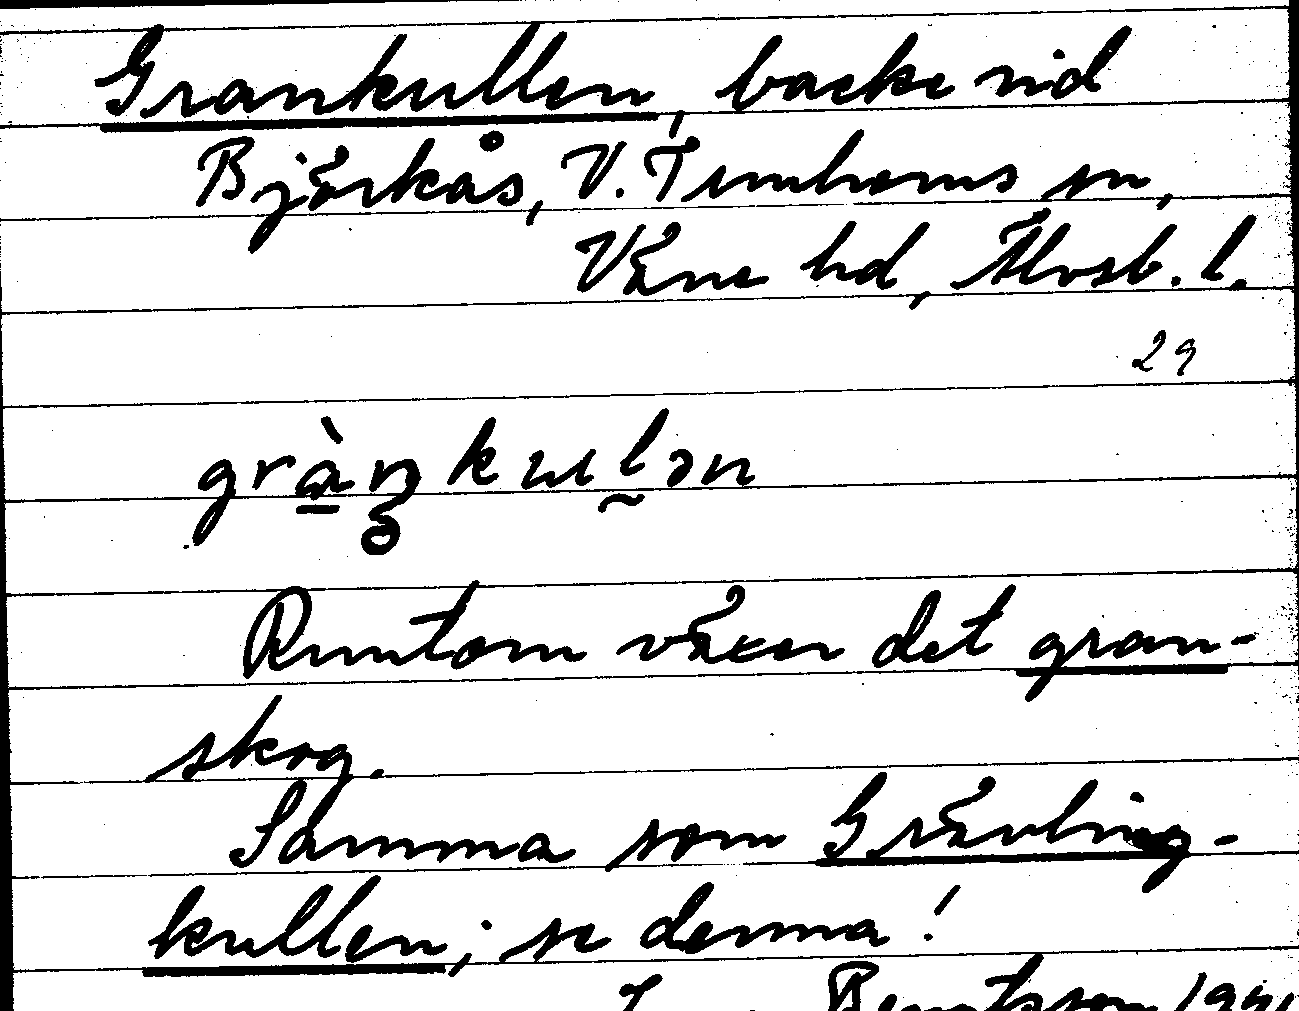 Grankullen, backe vid
Björkås, V. Tunhems sn,
Väne hd, Älvsb. l.
29
grànkulən
Runtom växer det gran-
skog.
Samma som Grävling-
kullen; se denna!
Bengtsson